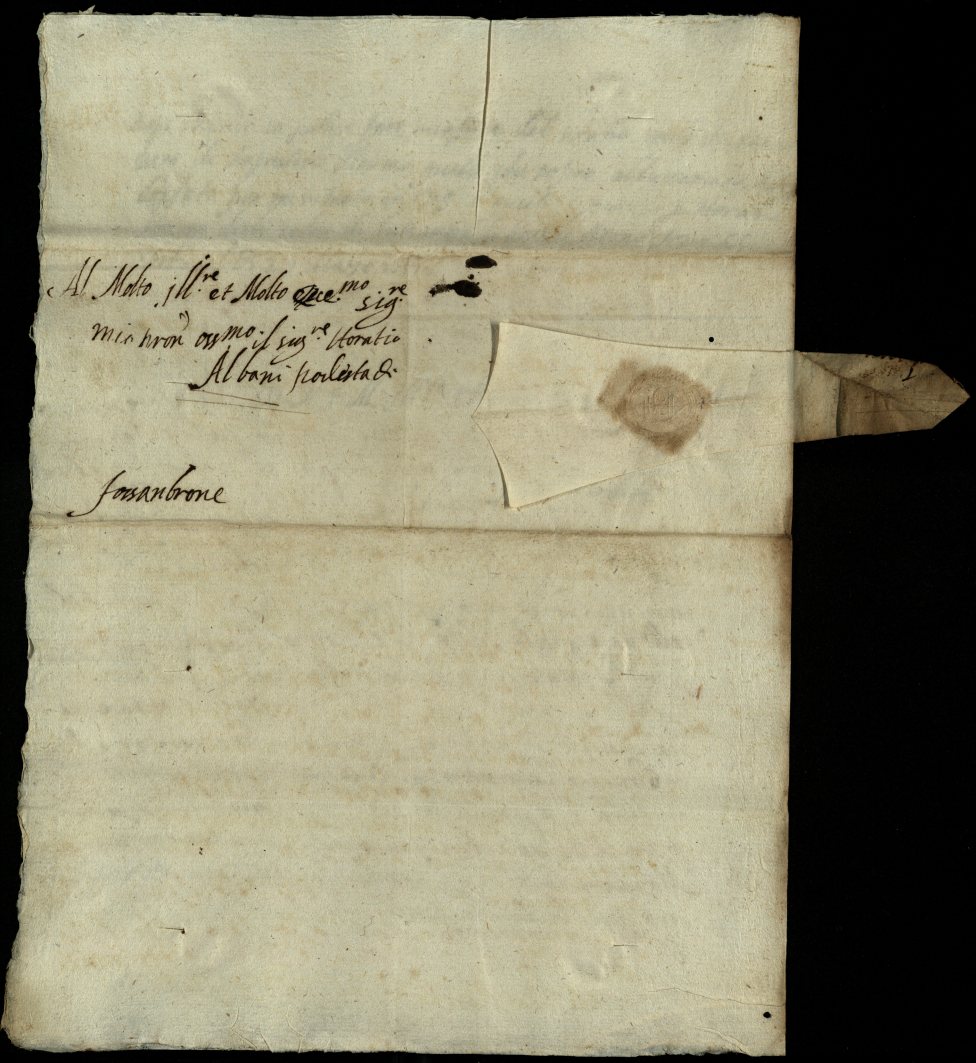 Al Molto ill.re et Molto ecce.mo sig.re
mio pron oss.mo il sig.re Horatio
Albani podesta di
fossanbrone